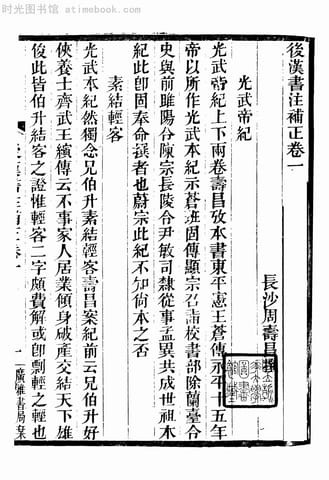 时光图书馆 - atimebook.com
後漢書注補正卷一
長沙周壽昌
光武帝紀
光武帝紀上下兩卷壽昌攷本書東平憲王蒼傳永平十五年
帝以所作光武本紀示蒼班固傳顯宗召詣校書部除蘭臺令
史與前睢陽令陳宗長陵令尹敏司隸從事孟異共成世祖本
紀此卽固奉命撰者也蔚宗此紀不知尙本之否
素結輕客
光武本紀然獨念兄伯升素結輕客壽昌案紀前云兄伯升好
俠養士齊武王縯傳云不事家人居業傾身破產交結天下雄
俊此皆伯升結客之證惟輕客二字頗費解或卽剽輕之輕也
一
廣雅書局栞